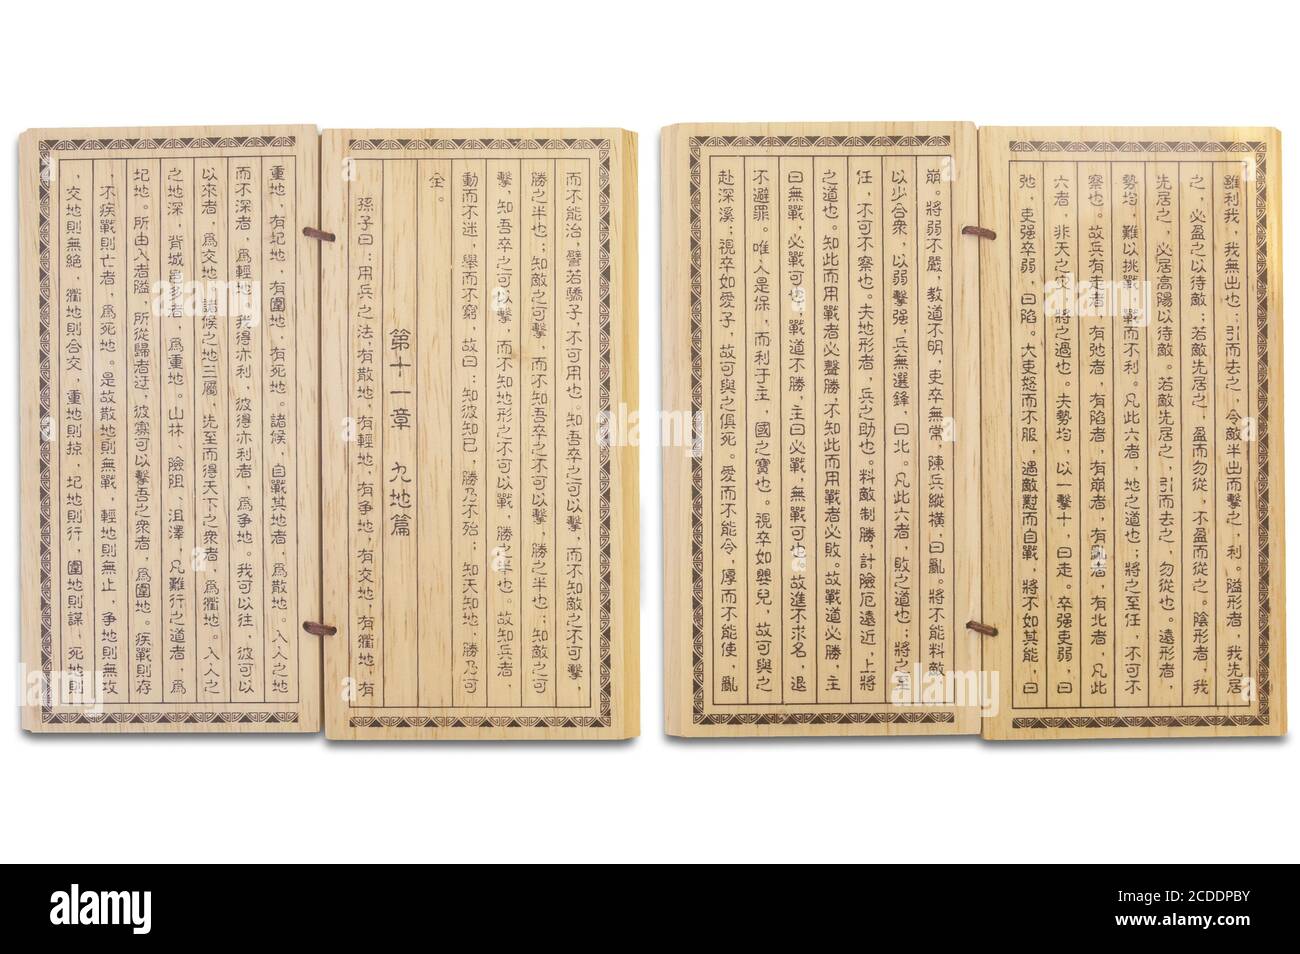 雖利我，我無出也；引而去之，令敵半出而擊之，利。隘形者，我先居
之，必盈之以待敵；若敵先居之，盈而勿從，不盈而從之。險形者，我
先居之，必居高陽以待敵。若敵先居之，引而去之，勿從也。遠形者，
勢均，難以挑戰，戰而不利。凡此六者，地之道也；將之至任，不可不
察也。故兵有走者，有弛者，有陷者，有崩者，有亂者，有北者，凡此
六者，非天之灾，將之過也。夫勢均，以一擊十，曰走。卒强吏弱，曰
弛，吏强卒弱，曰陷。大吏怒而不服，遇敵懟而自戰，將不如其能，曰
崩。將弱不嚴，教道不明，吏卒無常，陳兵縱橫，曰亂。將不能料敵
以少合衆，以弱擊强，兵無選鋒，曰北。凡此六者，敗之道也；將之至
任，不可不察也。夫地形者，兵之助也。料敵制勝，計險厄遠近，上將
之道也。知此而用戰者必勝，不知此而用戰者必敗。故戰道必勝，主
曰無戰，必戰可也，戰道不勝，主曰必戰，無戰可也。故進不求名，退
不避罪。唯人是保，而利于主，國之寶也。視卒如嬰兒，故可與之
赴深溪；視卒如愛子，故可與之俱死。愛而不能令，厚而不能使，亂
而不能治，譬若驕子，不可用也。知吾卒之可以擊，而不知敵之不可擊，
勝之半也；知敵之可擊，而不知吾卒之不可以擊，勝之半也；知敵之可
擊，知吾卒之可以擊，而不知地形之不可以戰，勝之半也。故知兵者，
動而不迷，舉而不窮，故曰：知彼知己，勝乃不殆；知天知地，勝乃可
全。
第十一章 九地篇
孫子曰：用兵之法，有散地，有輕地，有争地，有交地，有衢地，有
重地，有圮地，有圍地，有死地。諸候，自戰其地者，爲散地。入人之地
而不深者，爲輕地，我得亦利，彼得亦利者，爲争地。我可以往，彼可以
以來者，爲交地，諸候之地三屬，先至而得天下之衆者，爲衢地。入人之
之地深，背城邑多者，爲重地。山林，險阻、沮澤，凡難行之道者，爲
圮地。所由入者隘，所從歸者迂，彼寡可以擊吾之衆者，爲圍地。疾戰則存
，不疾戰則亡者，爲死地。是故散地則無戰，輕地則無止，争地則無攻
，交地則無絶，衢地則合交，重地則掠，圮地則行，圍地則謀，死地則
alamy
Image ID: 2CDDPBY
www.alamy.com